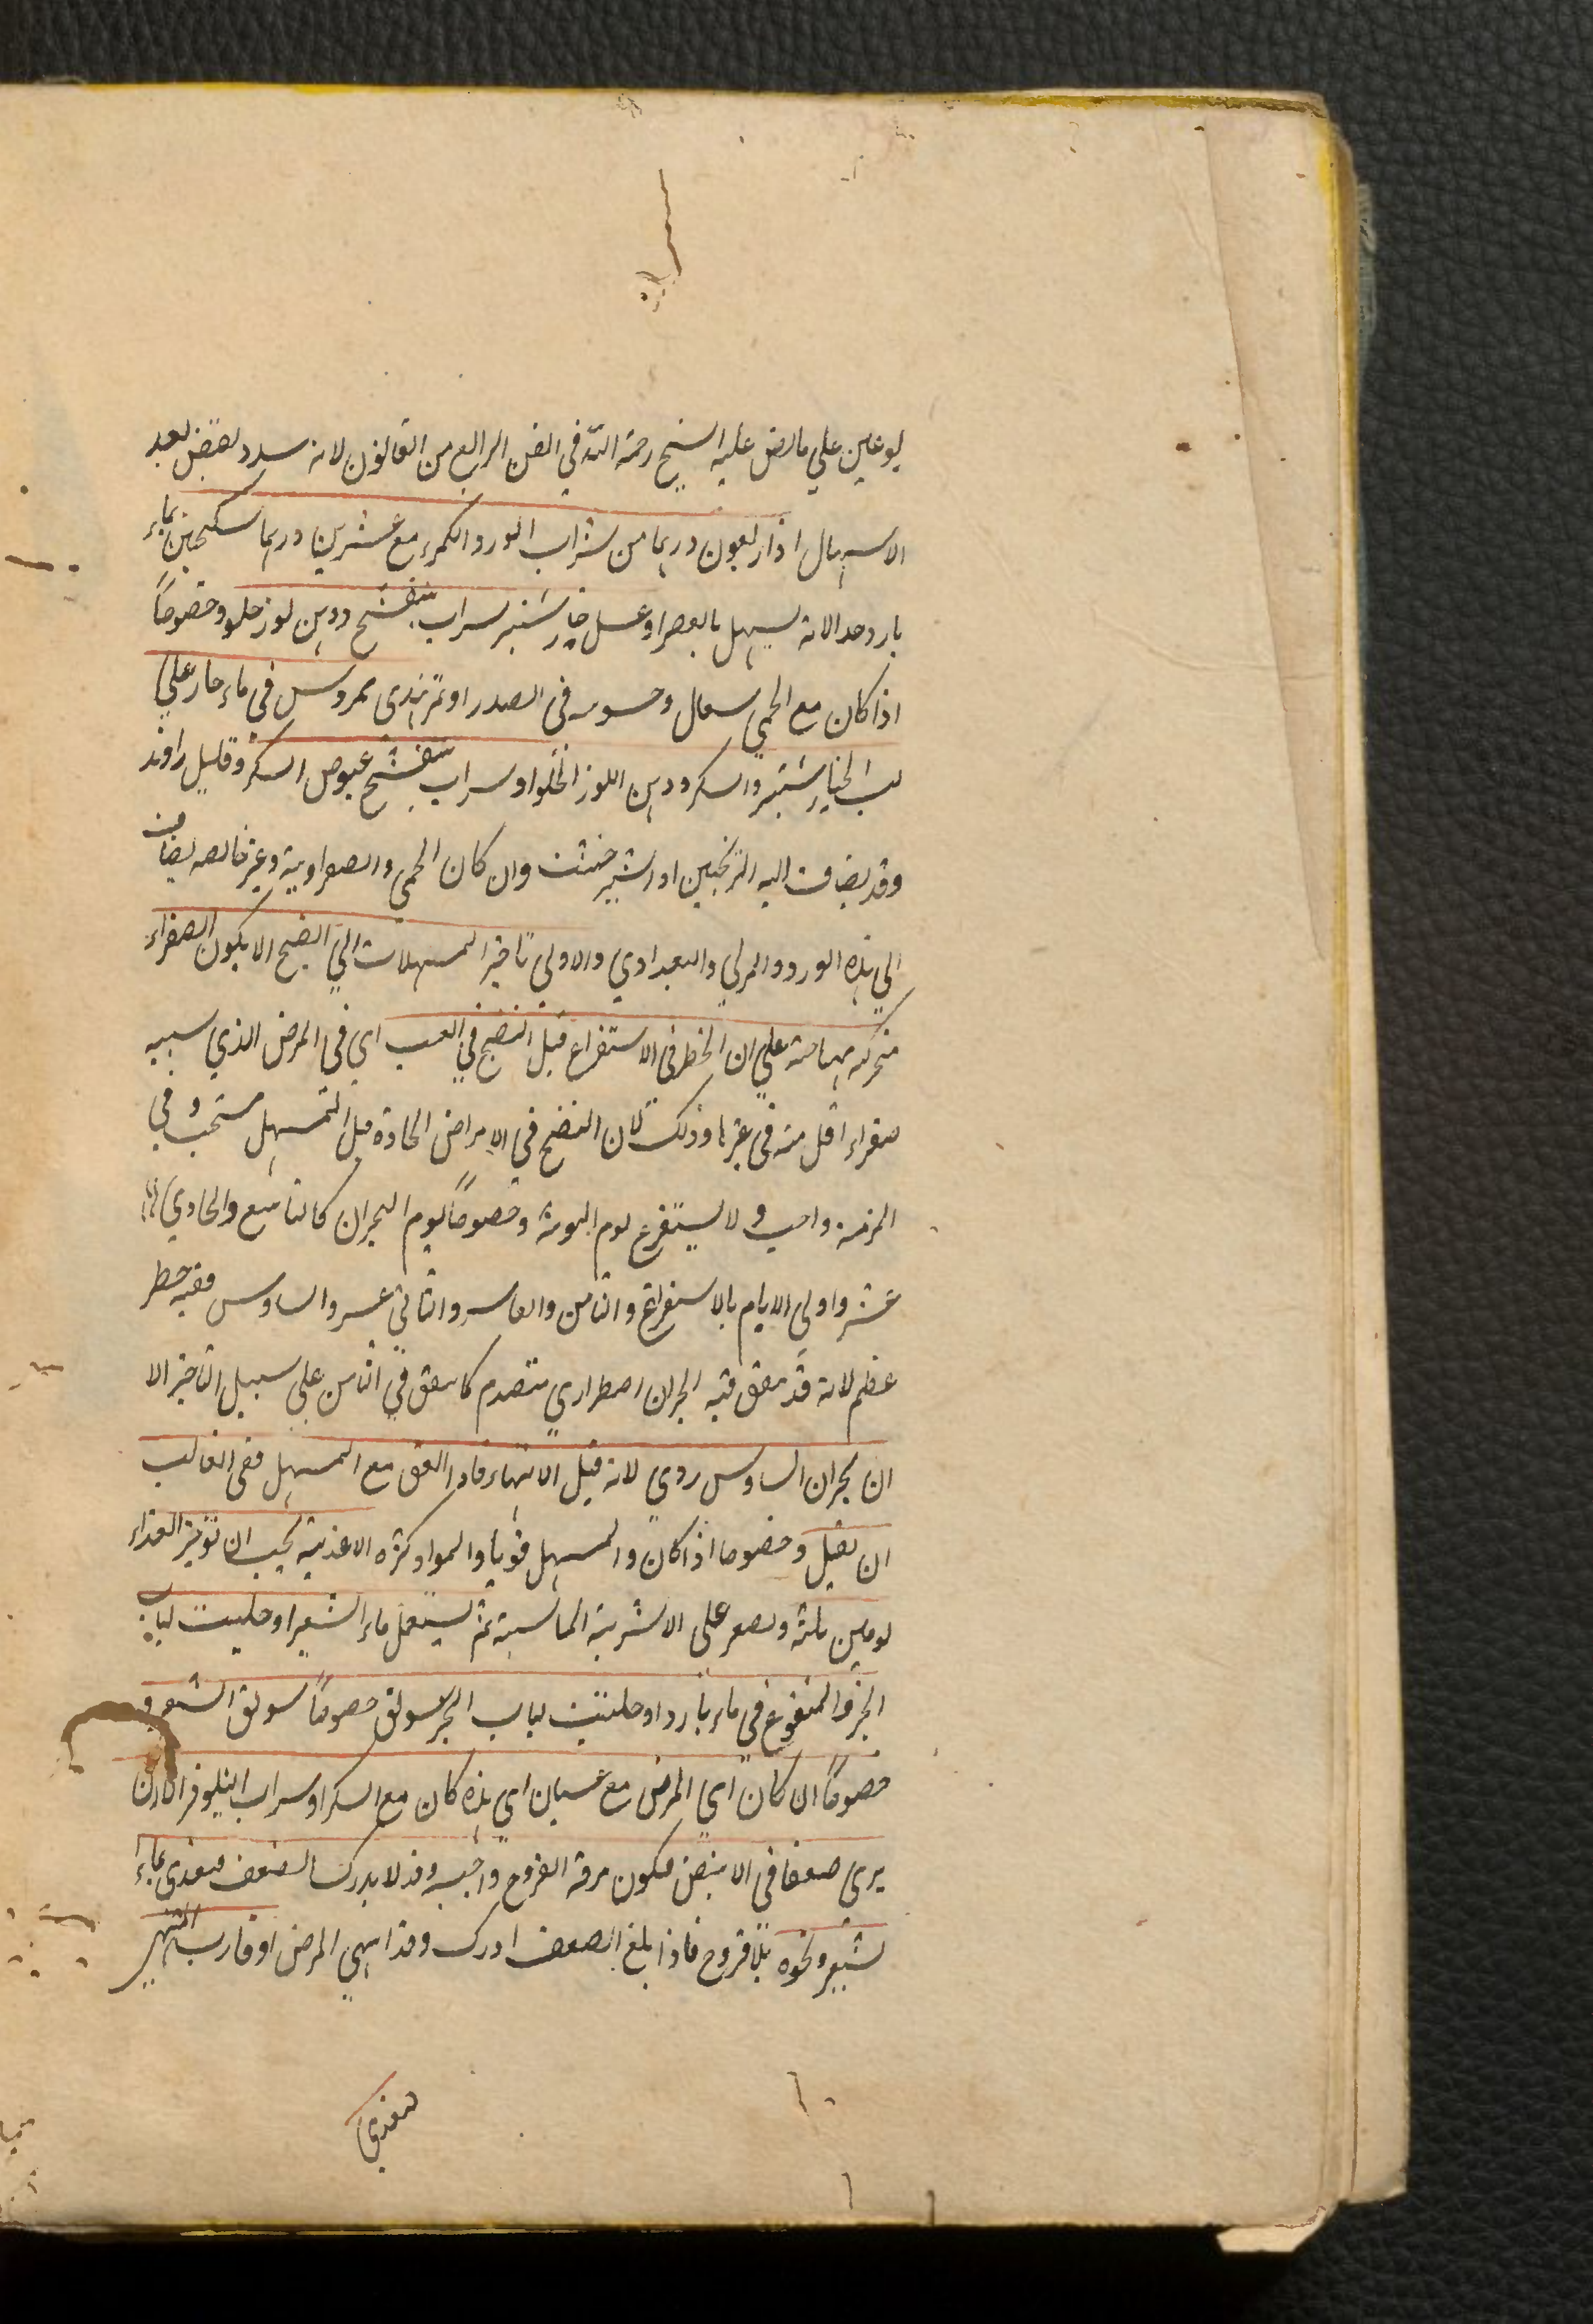 يوعين علي ما نص عليه الشيخ رحمة الله في الفن الرابع من القانون لانه سدد لقبض بعد
الاسهال اذ اربعون دربما من شراب الورد المكرر مع عشرين دربما سكنجبين بماء
بارد وحد الانه يسهل بالعصر او عسل خيار شنبر سراب بنفشج ودهن لوز حلو وخصوصاً
اذا كان مع الحمي سعال وحسونه في الصدر او تمر هندي ممروس في ماء حار علي
لب الخيار شنبر والسكر ودهن اللوز الحلو او سراب بنفشج عوض السكر وقليل راوند
وقد يضاف اليه الترنجبين او الشير خشت وان كان الحمي والصفراوية وغير خالصه يضاف
الي هذه الورد والمربي والبغدادي والاولي تاخير المسهلات الي النضج الا يكون الصفراء
متحركه مهتاجه علي ان الخطر في الاستفراغ قبل النضج في الغب اي في المرض الذي سببه
صفراء اقل منه في غيرها وذلك لان النضج في الامراض الحادة قبل المسهل مستحب وفي
المزمنه واجب ولا يستفرغ يوم النوبة وخصوصاً يوم البحران كالتاسع والحادي
عشر واولي الايام بالاستفراغ والثامن والعاسر والثاني عسر والسادس ففيه خطر
عظيم لانه قد يتفق فيه البحران اصطراري متقدم كا يتفق في الثامن علي سبيل التاخير الا
ان بحران السادس ردي لانه قبل الانتهاء فاذا اتفق مع المسهل ففي الغالب
ان يقتل وخصوصا اذا كان والمسهل قويا والمواد كثره الاغذية يجب ان توخر الغذاء
يومين ثلثه ويصر علي الاشربة المناسبة ثم يستعمل ماء الشعير او حليب لباب
الخبز المنقوع في ماء بارد او حليب لباب الخبز سويق خصوصاً سويق الشعير و
خصوصاً ان كان اي المرض مع غسيان اي هذه كان مع السكر او سراب النيلوفر الا ان
يري صعفا في الا ينبض فيكون مرقة الفروج واجبه وقد لا يدرك الضعف فيغذي بماء
لشعير ونحوه بلا فروج فاذا بلغ الصعف ادرك وقد انتهي المرض او قارب المنتهي
فيغذي